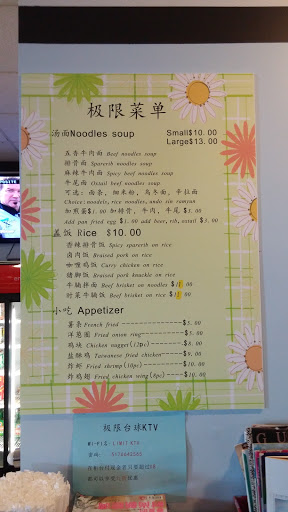 极限菜单
汤面Noodles soup
Small$10.00
Large$13.00
五香牛肉面 Beef noodles soup
排骨面 Sparerib noodles soup
麻辣牛肉面 Spicy beef noodles soup
牛尾面 Oxtail beef noodles soup
可选：面条，细米粉，乌冬面，辛拉面
Choice: noodels, rice noodles, udo
加煎蛋$1.00 加排骨，牛肉，牛尾 $3.00
Add pan fried egg $1.00 add beef, rib, oxtail $3.00
盖饭 Rice $10.00
香辣排骨饭 Spicy sparerib on rice
卤肉饭 Braised pork on rice
咖喱鸡饭 Curry chicken on rice
猪脚饭 Braised pork knuckle on rice
牛腩拼面 Beef brisket on noodles $11
牛腩饭 Beef brisket on rice $11
小吃 Appetizer
薯条French fried $5.00
洋葱圈 Fried onion ring $5.00
鸡块 Chicken nugget(12pc) $8.00
盐酥鸡 Taiwanese fried chicken $9.00
炸虾 Fried shrimp(10pc) $10.00
炸鸡翅 Fried chicken wing(8pc) $10.00
极限台球KTV
Wi-Fi名: LIMIT KTV
密码: